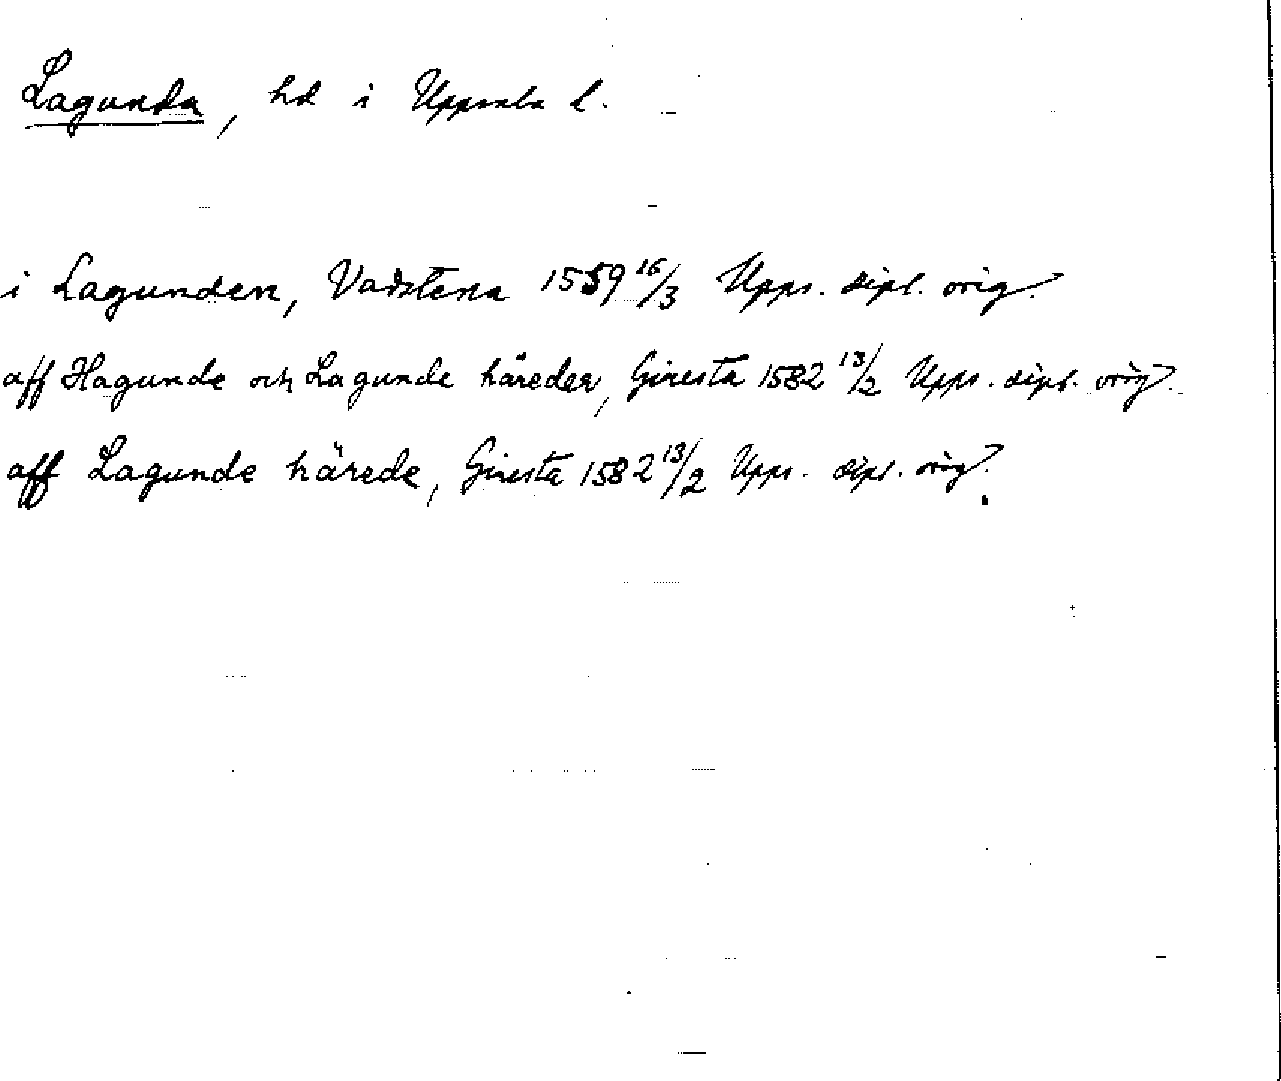 Lagunda, hd i Uppsala l.
i Lagunden, Vadstena 1559 16/3 Upps. dipl. orig.
aff Hagunde och Lagunde häreder, Giresta 1582 13/2 Upps. dipl. orig.
aff Lagunde härede, Giresta 1582 13/2 Upps. dipl. orig.